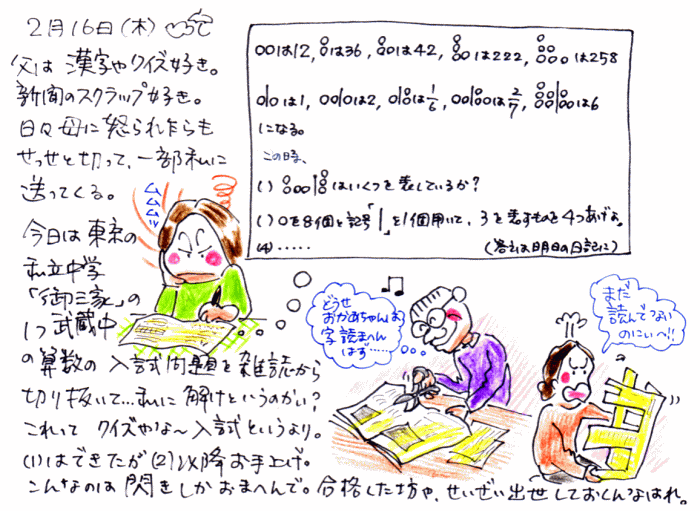 2月16日(木)
父は漢字やクイズ好き。
新聞のスクラップ好き。
日々母に怒られながらも
せっせと切って、一部私に
送ってくる。
今日は東京の
私立中学
「御三家」の
1つ武蔵中
の算数の入試問題を雑誌から
切り抜いて…私に解けというのかい?
これって クイズやな〜入試というより。
(1)はできたが(2)以降お手上げ。
こんなのは閃きしかおまへんで。合格した坊や、せいぜい出世しておくんなはれ。
は12, は36, は42, は222, は258
は1, は2, は1/6, は2/7, は6
になる。
この時、
( ) はいくつを表しているか?
( ) 0を8個と記号「|」を1個用いて、3を表すものを4つあげよ。
(4)・・・・・ (答えは明日の日記に)
ムムムム
どうせ
おかあちゃんは、
字読まへん
はず……
まだ
読んでってない
のにぃへ!!